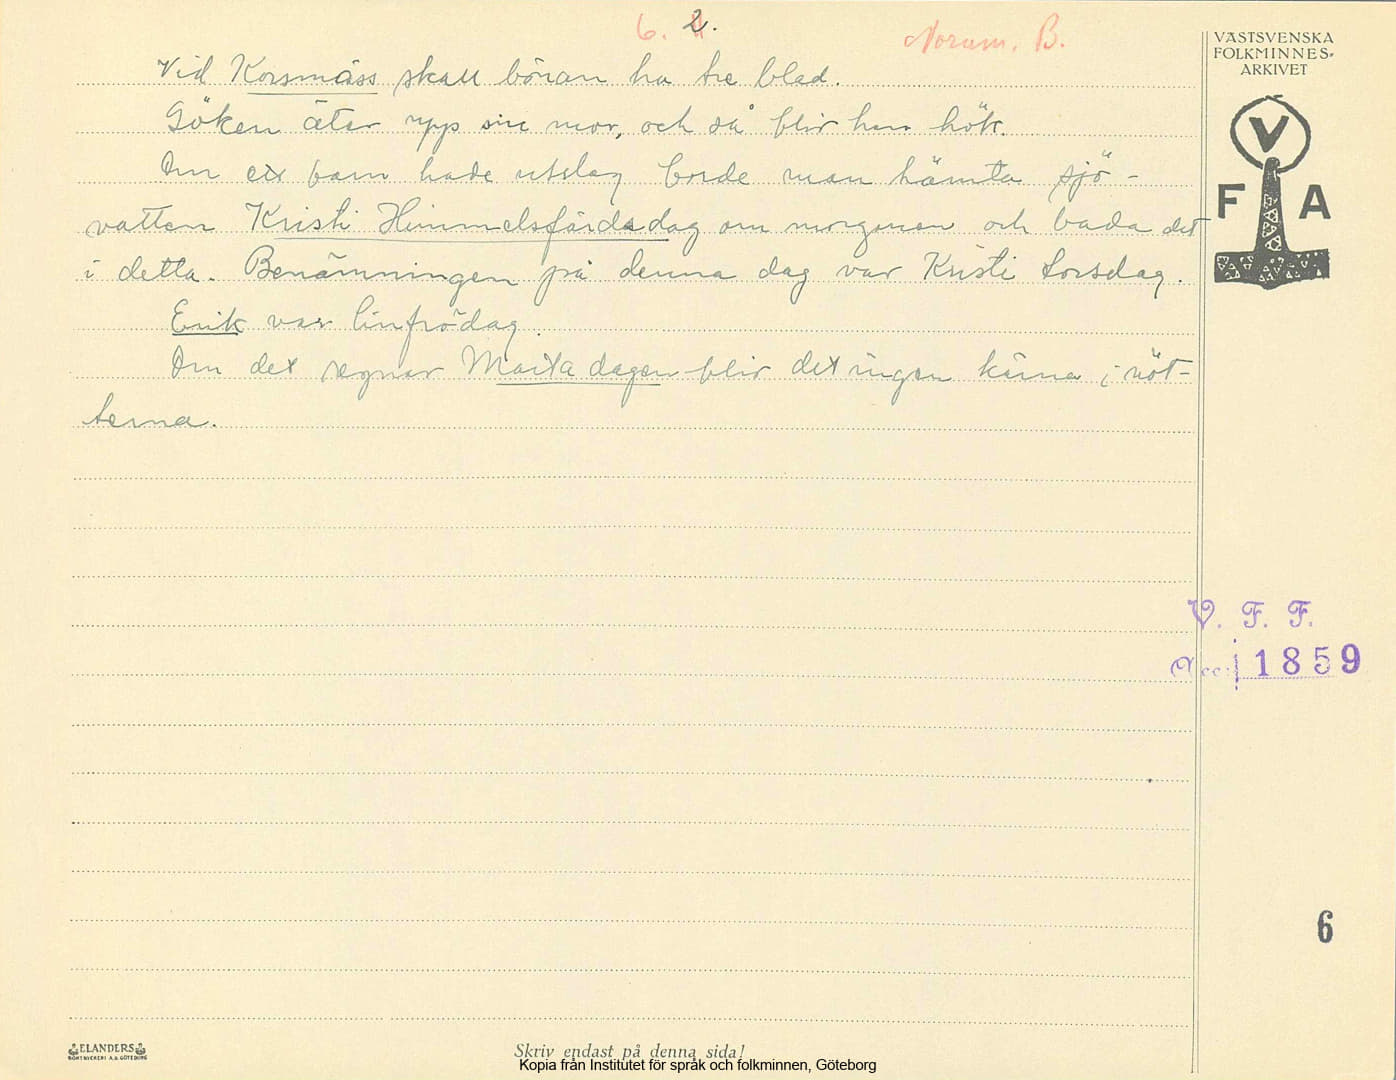 6. 2.
Norum. B.
VÄSTSVENSKA
FOLKMINNES-
ARKIVET
V
F A
Vid Korsmäss skall bönan ha tre blad.
Göken äter upp sin mor, och så blir han hök.
Om ett barn hade utslag borde man hämta sjö-
vatten Kristi Himmelsfärdsdag om morgonen och bada det
i detta. Benämningen på denna dag var Kristi torsdag.
Erik var linfrödag.
Om det regnar Märta dagen blir det ingen kärna i nöt-
terna.
V. F. F.
Acc: 1859
6
ELANDERS
BOKTRYCKERI A.B. GÖTEBORG
Skriv endast på denna sida!
Kopia från Institutet för språk och folkminnen, Göteborg